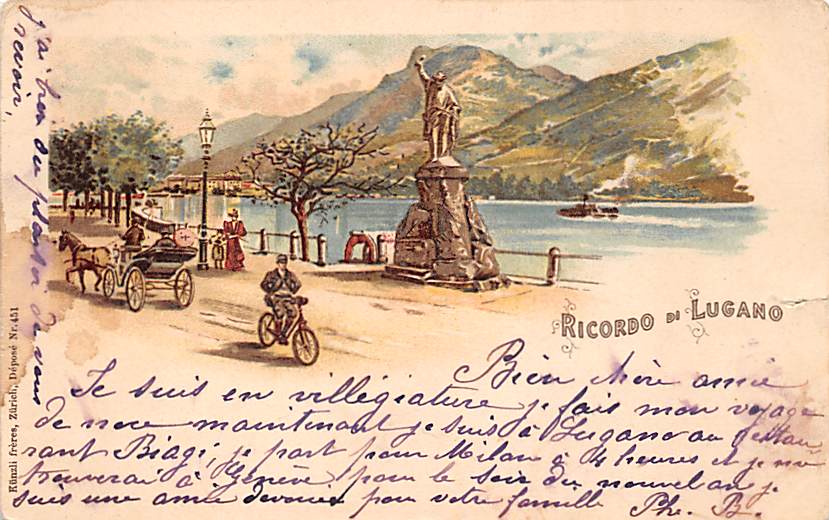 RICORDO DI LUGANO
Bien chère amie
Je suis en villégiature je fais mon voyage
de noce maintenant je suis à Lugano au restau
rant Biagi, je part pour Milan à 4 heures et je me
trouverai à Genève pour le soir du nouvel an je
suis une amie devouée pour votre famille Ph. B.
j'ai bien du plaisir de vous
revoir,
Künzli frères, Zürich, Déposé Nr. 451